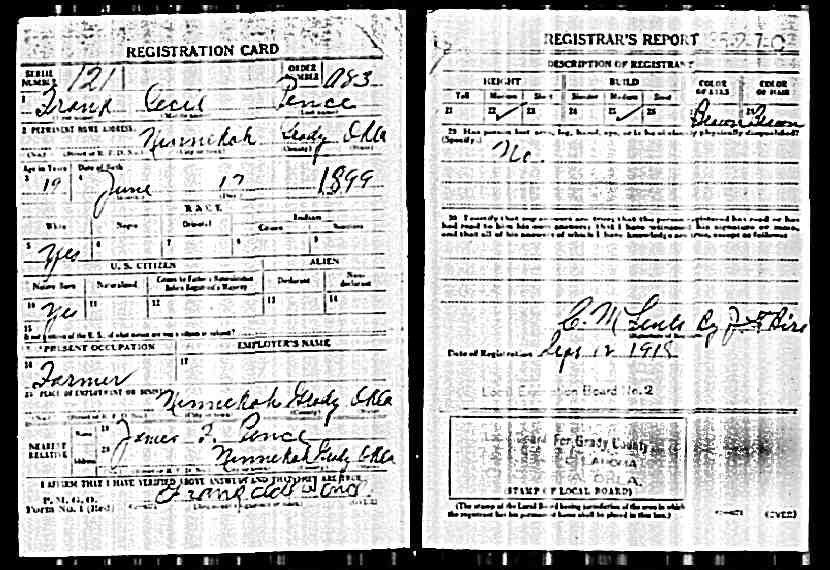 REGISTRATION CARD
SERIAL NUMBER 121
ORDER NUMBER A83
1 Frank Cecil Pence
2 PERMANENT HOME ADDRESS:
Ninnekah Grady Okla
Age in Years
Date of Birth
3 19 4 June 17 1899
RACE
White Negro Oriental Indian
Citizen
5 Yes 6 7 8 9
U. S. CITIZEN ALIEN
Native Born Naturalized Citizen by Father's Naturalization Before Registrant's Majority Declarant Non-declarant
10 Yes 11 12 13 14
15
PRESENT OCCUPATION EMPLOYER'S NAME
16 Farmer 17
18 PLACE OF EMPLOYMENT OR BUSINESS
Ninnekah Grady Okla
NEAREST RELATIVE
Name 19 James Pence
Address 20 Ninnekah Grady Okla
I AFFIRM THAT I HAVE VERIFIED ABOVE ANSWERS AND THAT THEY ARE TRUE
P. M. G. O.
Form No. 1 (Red)
Frank Pence
(OVER)
REGISTRAR'S REPORT
DESCRIPTION OF REGISTRANT
HEIGHT BUILD COLOR OF EYES COLOR OF HAIR
Tall Medium Short Slender Medium Stout
21 22 ✓ 23 24 25 ✓ 26 Brown Brown
29 Has person lost arm, leg, hand, eye, or is he obviously physically disqualified?
(Specify.)
No.
30 I certify that my answers are true; that the person registered has read or has
had read to him his own answers; that I have witnessed his signature or mark,
and that all of his answers of which I have knowledge are true, except as follows:
C. M.
Date of Registration Sept 12 1918
Local Board No. 2
For Grady County
(STAMP OF LOCAL BOARD)
(The stamp of the Local Board having jurisdiction of the area in which
the registrant has his permanent home shall be placed in this box.)
(OVER)